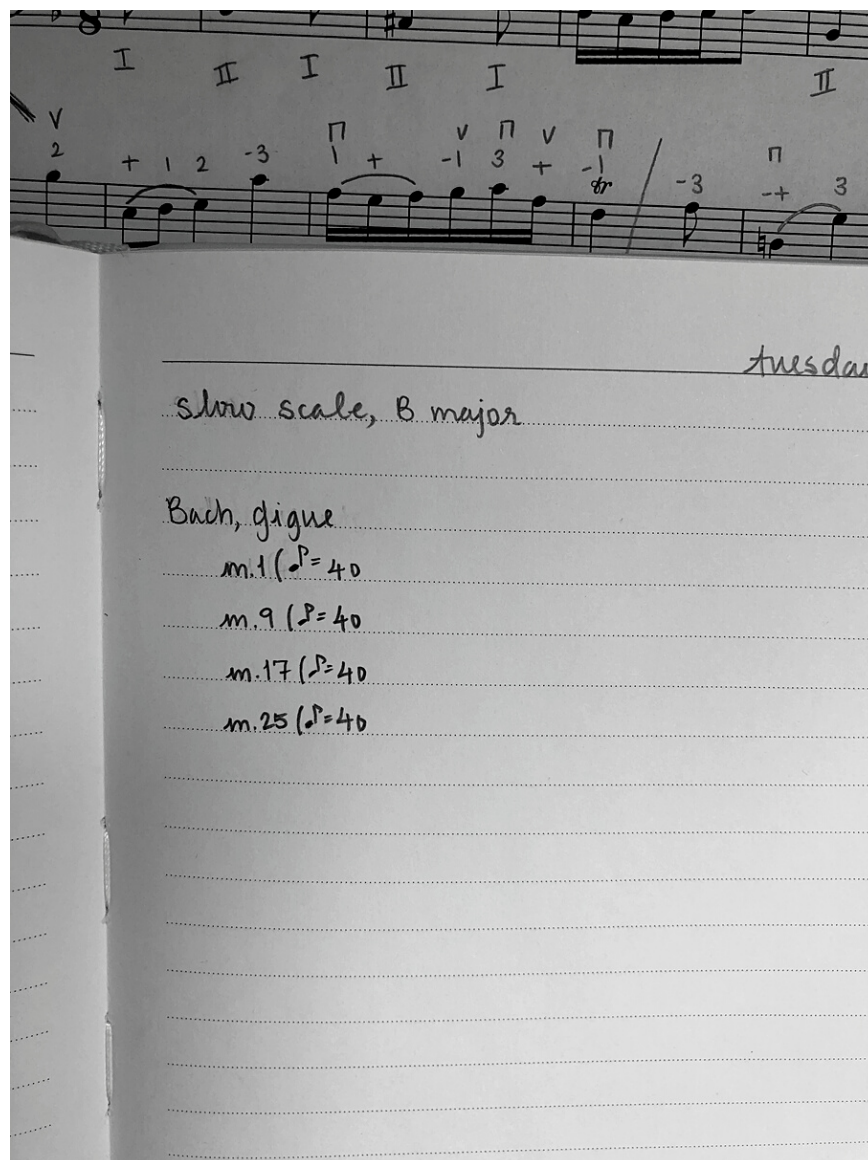 I II I II I II
V Π V Π V Π Π
2 + 1 2 -3 1 + -1 3 + -1 -3 -+ 3
tr
tuesda
slow scale, B major
Bach, gigue
m.1 (♪=40
m.9 (♪=40
m.17 (♪=40
m.25 (♪=40